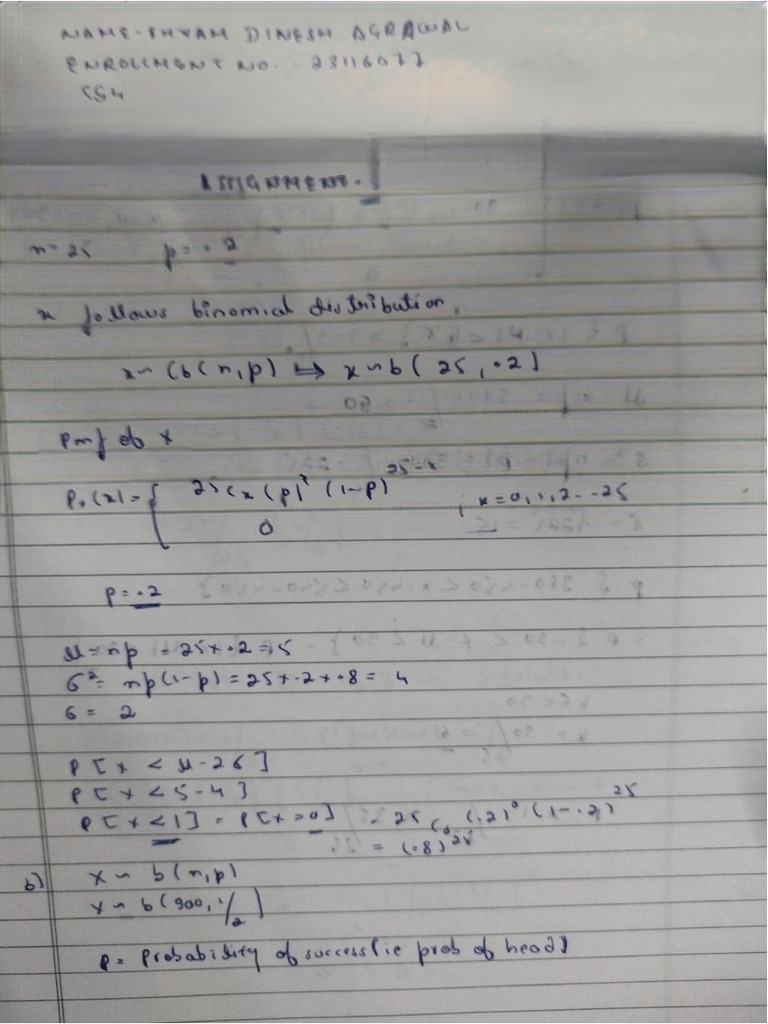 NAME-SHYAM DINESH AGRAWAL
ENROLLMENT NO. - 23116077
CS4
ASSIGNMENT.
n=25 p= .2
x follows binomial distribution,
x~ (b(n,p) ⟹ x~b( 25, .2)
pmf of x
Px(x)= { 25Cx (p)^x (1-p)^25-x ; x=0,1,2--25
0
p = .2
μ=np = 25x.2=5
σ²= np(1-p)= 25x.2x.8= 4
σ = 2
P[x < μ-2σ]
P[x < 5-4]
P[x<1] = P[x=0] = 25C0 (.2)^0 (1-.2)^25
= (.8)^25
b) x ~ b(n,p)
x ~ b(900, 1/2)
p= probability of success(ie prob of head)